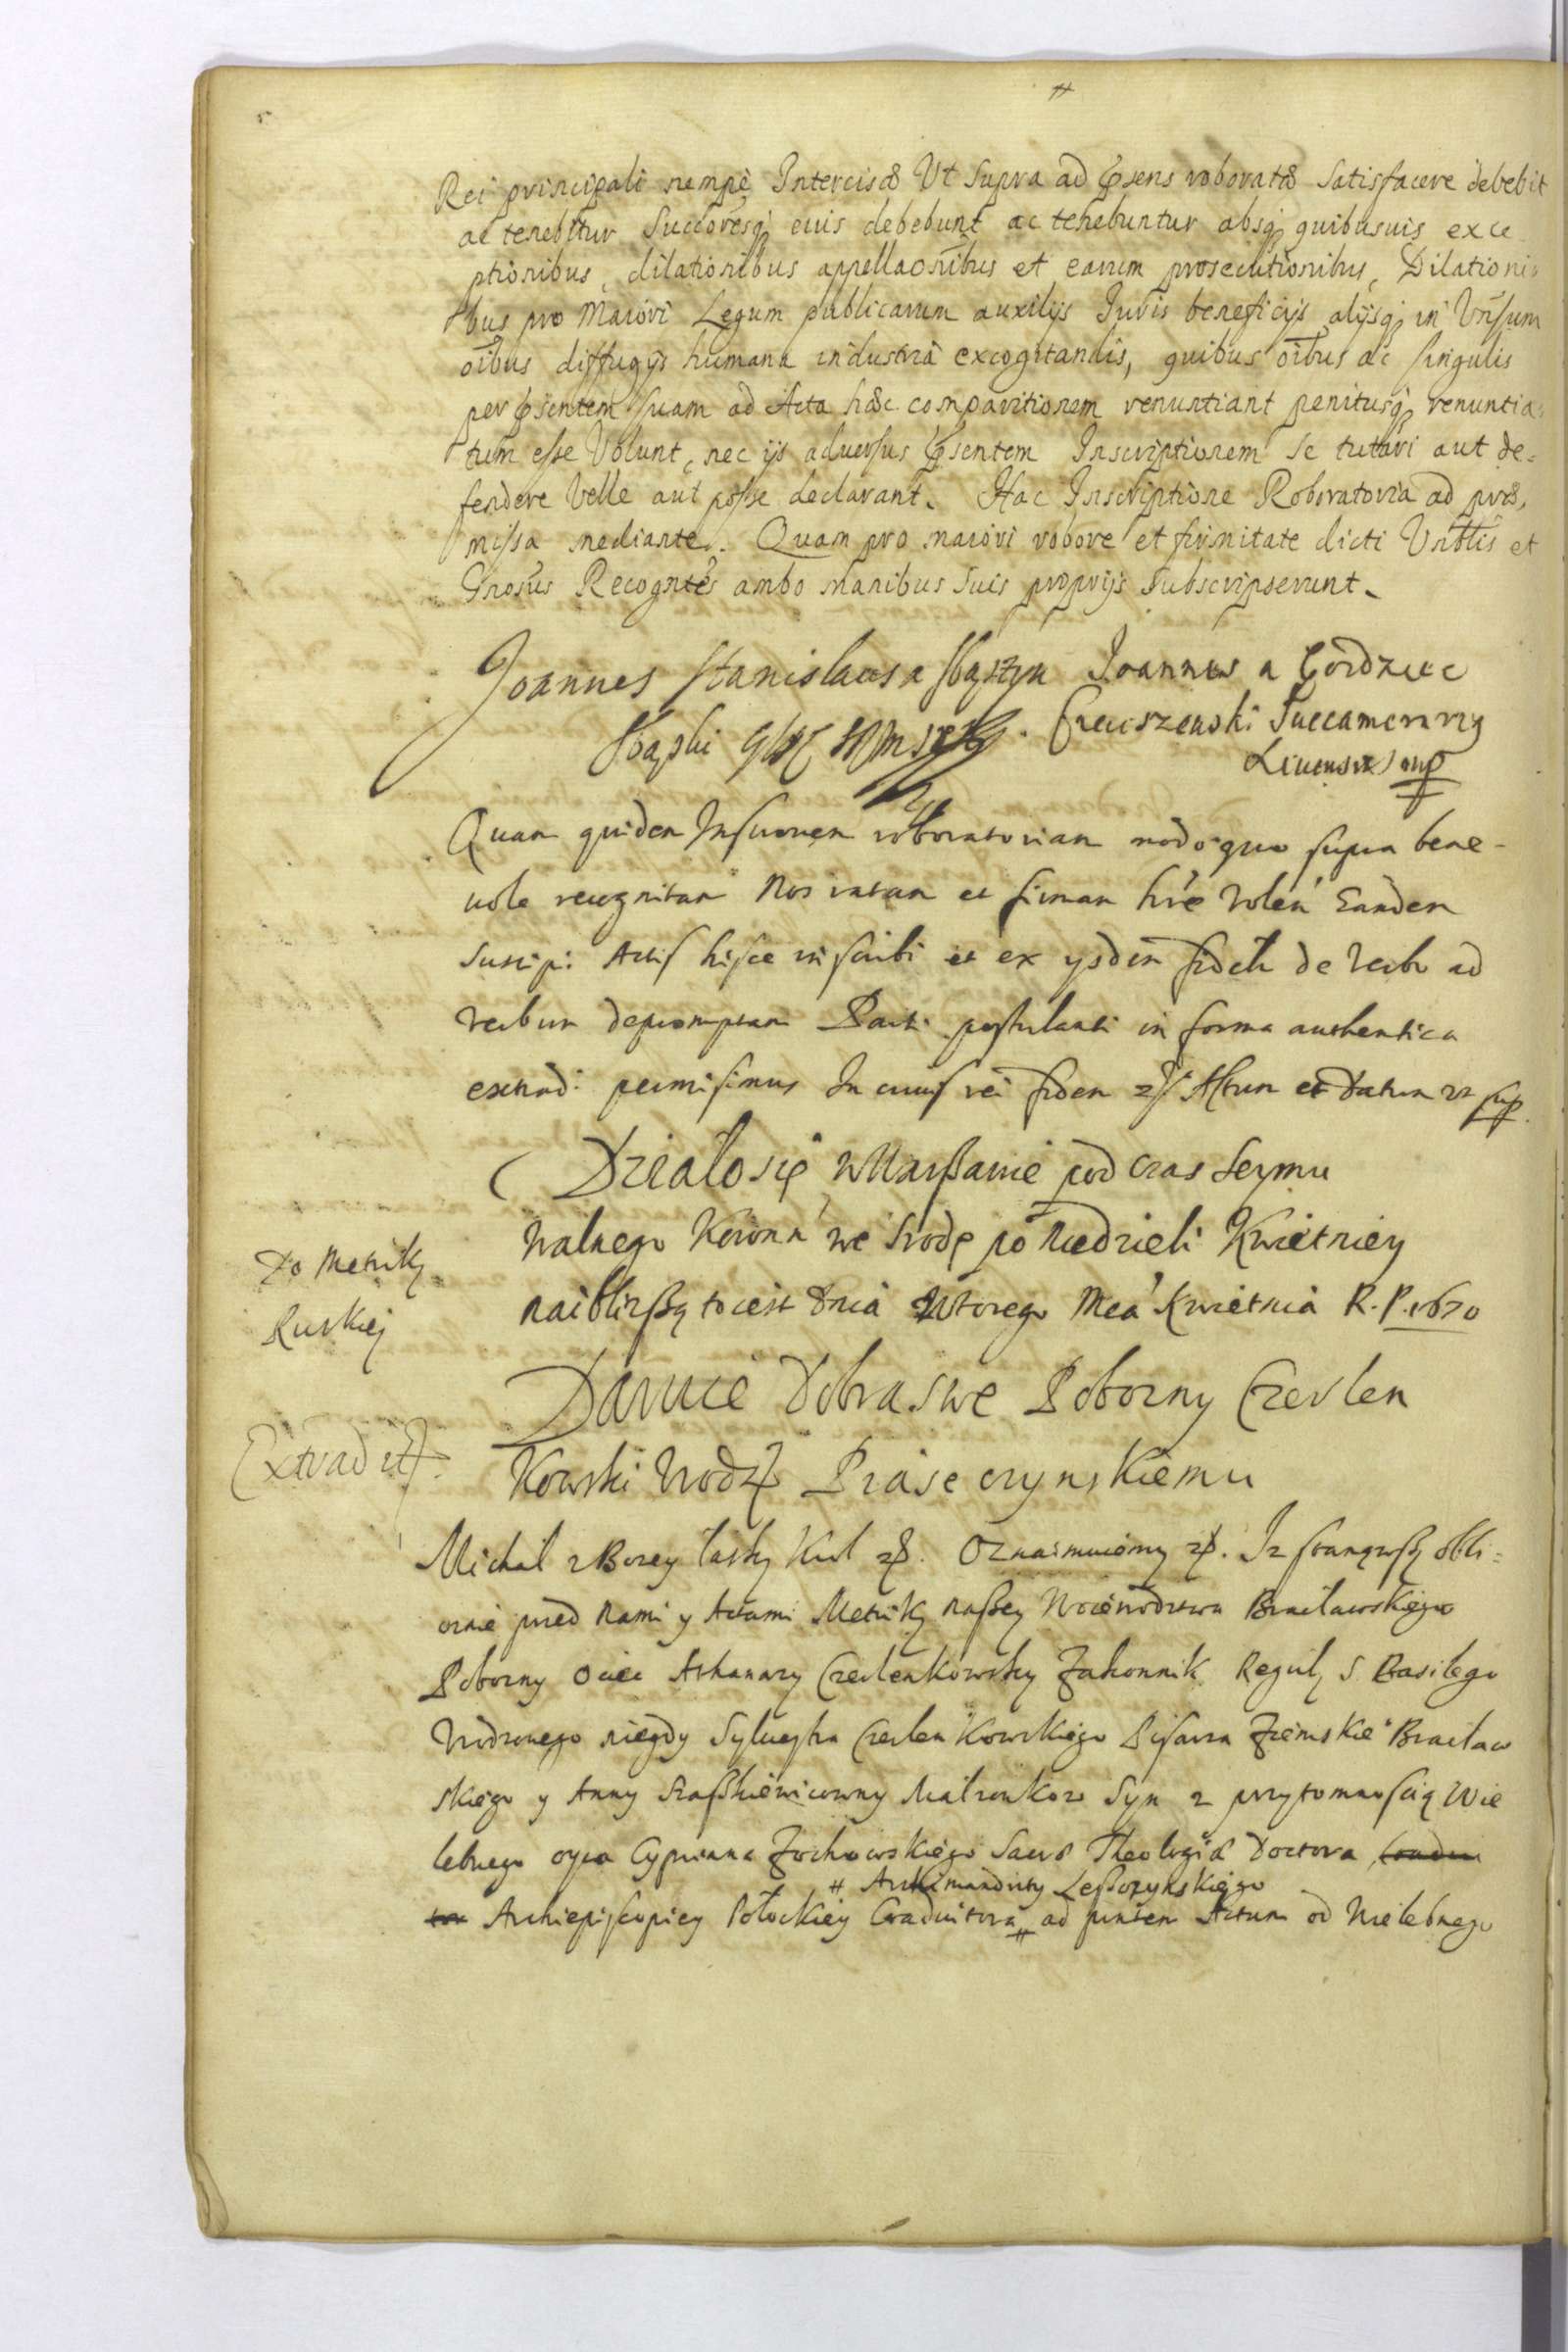 Rei principali nempè Intercisæ Ut Supra ad pṣens roboratæ satisfacere debebit
ac tenebitur Successoresq; eius debebunt ac tenebuntur absq; quibusuis exce
ptionibus, dilationibus appellaōnibus et earum prosecutionibus, Dilationi
bus pro Maiori Legum publicarum auxilijs Iuris beneficijs alijsq; in Uñsum
oībus diffugijs humana industria excogitandis, quibus oībus ac singulis
per pṣentem suam ad Acta hæc comparitionem renuntiant penitusq; renuntia
tum esse Volunt, nec ijs aduersus pṣentem Inscriptionem se tutari aut de=
fendere Velle aut posse declarant. Hac Inscriptione Roboratoria ad præ,
missa mediante. Quam pro maiori robore et firmitate dicti Urbtis et
Gnosus Recogntes ambo manibus suis proprijs subscripserunt.
Joannes Stanislaus a Sbąszyn Joannes a Gordziec
Sbąski Czeciszewski Succamerarius
Liuensis mp
Quam quidem Insinonem roboratoriam modo quo supra bene-
uole recognitam Nos ratam et firmam hre volen Eandem
Suscipi Actis hisce inscribi et ex ysdem fideli de Verbo ad
Verbum depromptam Parti postulanti in forma authentica
extradi permisimus In cuius rei fidem zß Actum et Datum ut sup.
Działosię w Warßawie pod czas Seymu
Walnego Koronn we Srodę po Niedzieli Kwietniey
naibliższą to iest Dnia Wtorego Mca Kwietnia R. P. 1670
Do Metriky
Ruskiej
Daruie Dobra swe Pobozny Czerlen
kowski Urodz Piaseczynskiemu
Extradit
Michał z Bozey łasky Krol zß. Oznaimuiemy zß. Iz stanąwszy obli=
cznie przed Nami y Actami Metriky naßey Woiewodztwa Bracławskiego
Pobozny Ociec Athanazy Czerlenkowsky Zakonnik Reguły S. Basilego
Urodzonego niegdy Sylwestra Czerlenkowskiego Pisarza Ziemskie Bracław
skiego y Anny Staßkiewicowny Malzonkow Syn z przytomnością Wie
lebnego oyca Cypriana Zochowskiego Sacræ Theologiæ Doctora
# Archimandrity Leßczynskiego
Archiepiscopiey Połockiey Coadiutora # ad punten Actum od Wielebnego